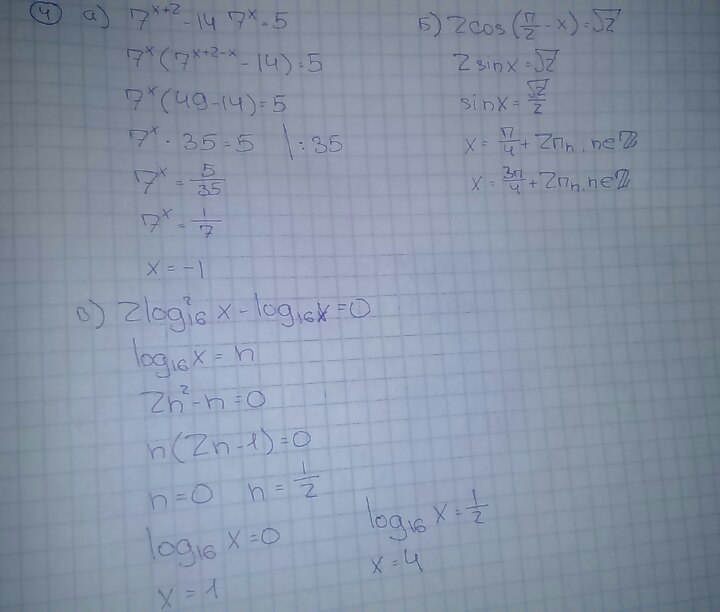 4 а) 7^(x+2) - 14 7^x = 5
7^x (7^(x+2-x) - 14) = 5
7^x (49 - 14) = 5
7^x · 35 = 5 | : 35
7^x = 5/35
7^x = 1/7
x = -1
б) 2cos(π/2 - x) = √2
2 sinx = √2
sinx = √2/2
x = π/4 + 2πn, n∈ℤ
x = 3π/4 + 2πn, n∈ℤ
в) 2log²₁₆ x - log₁₆x = 0
log₁₆x = n
2n² - n = 0
n(2n - 1) = 0
n = 0 n = 1/2
log₁₆ x = 0
x = 1
log₁₆ x = 1/2
x = 4